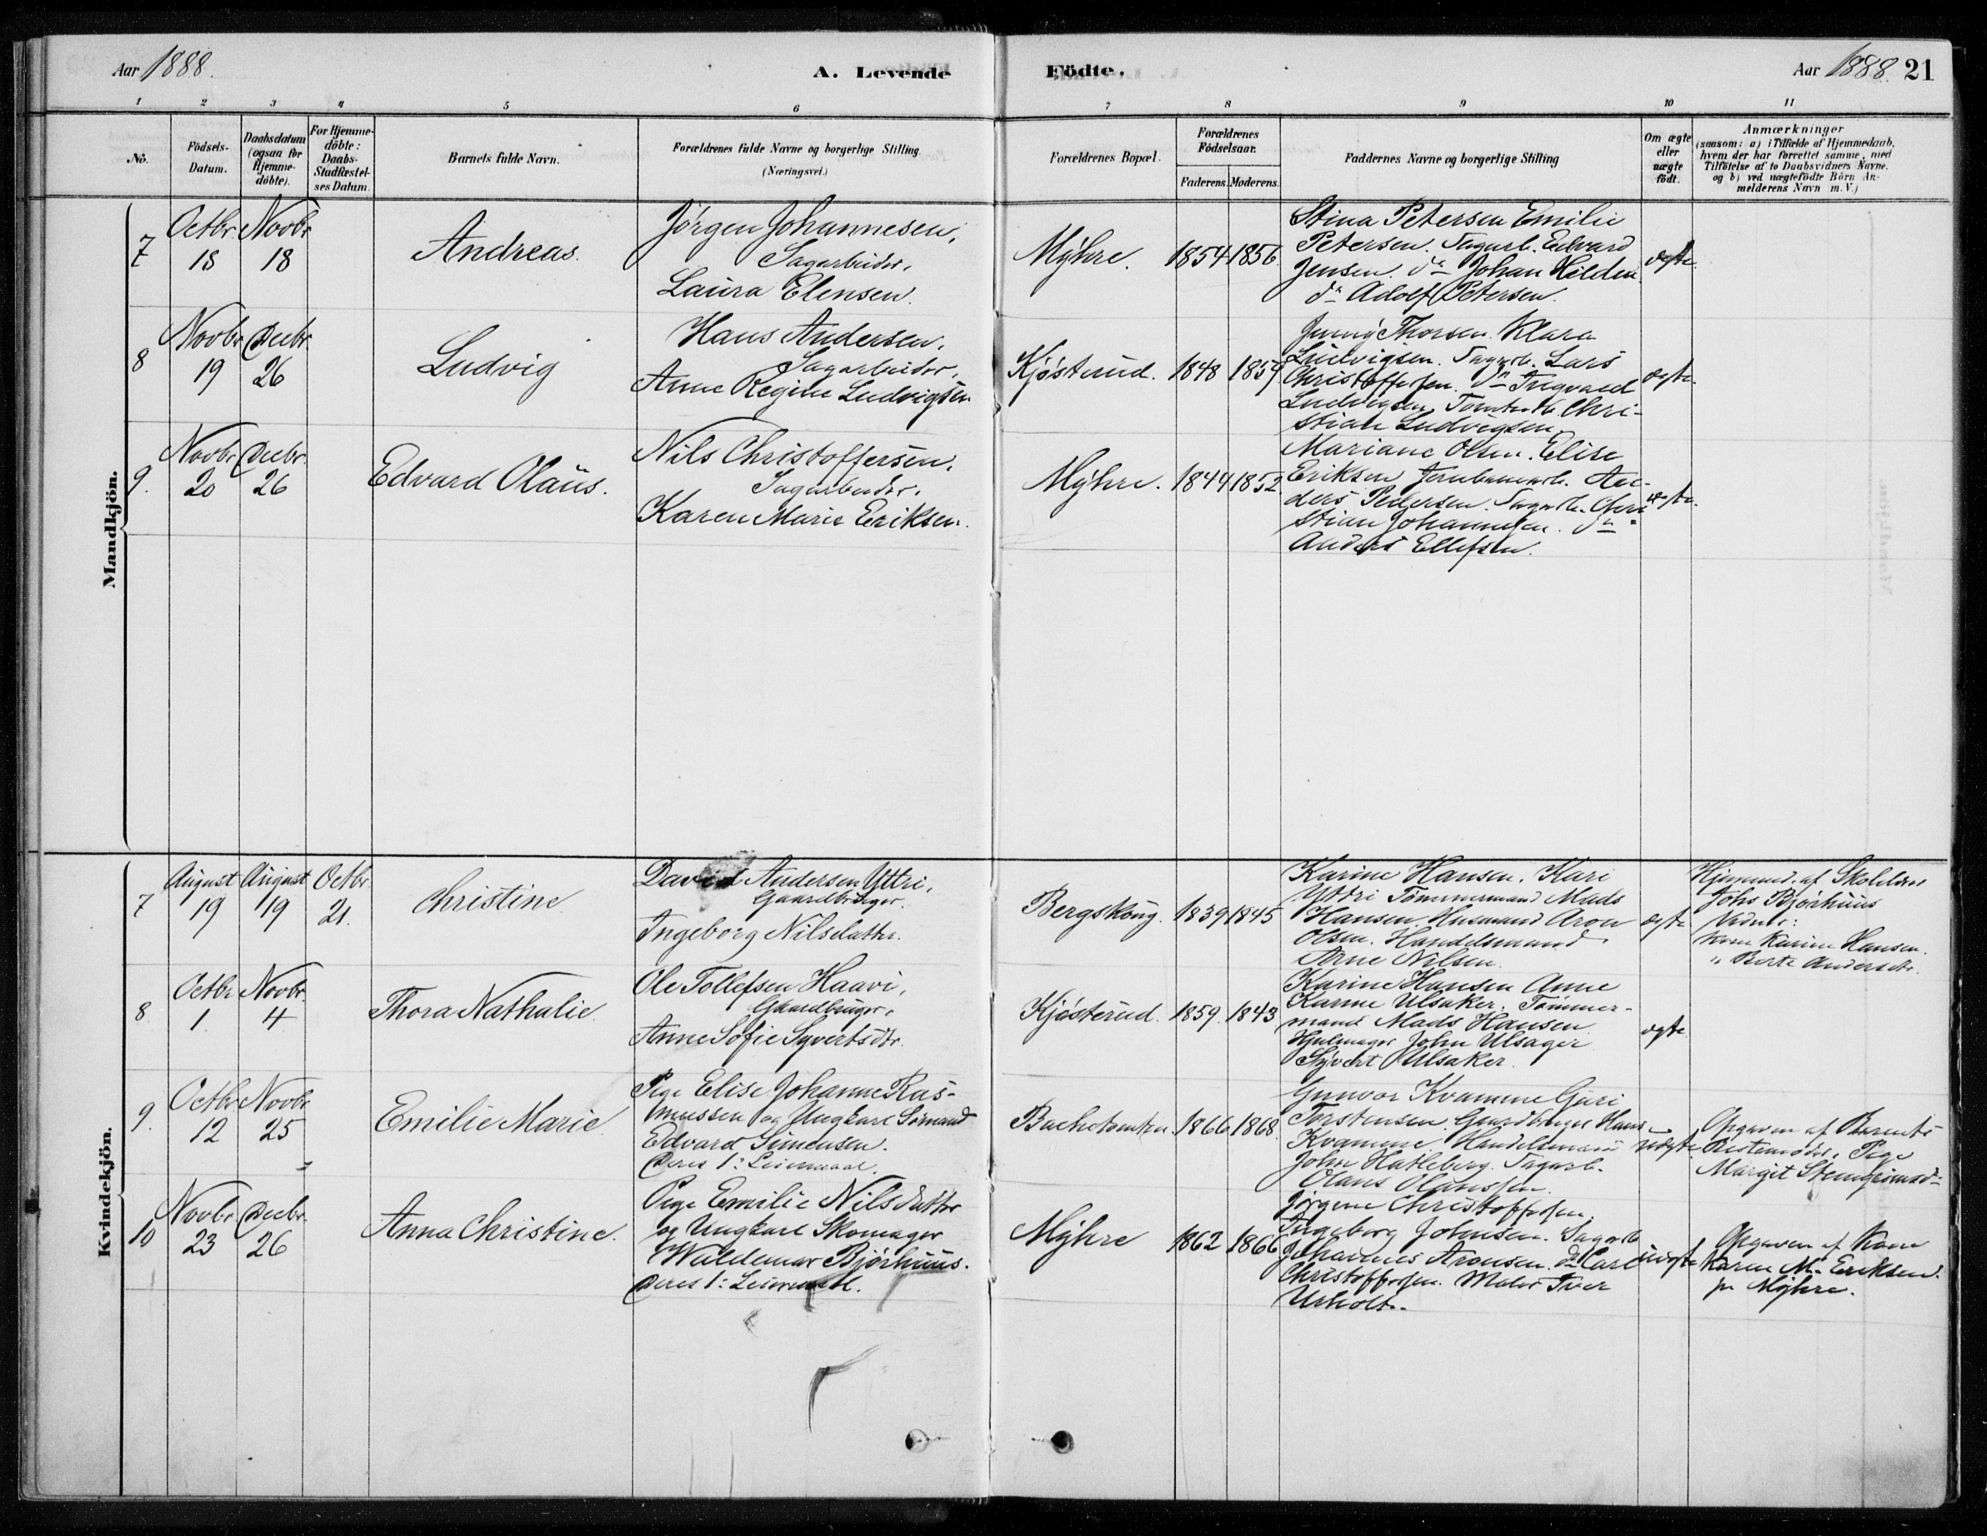 Aar 1888.
A. Levende
Födte.
Aar 1888. 21
1 2 3 4 5 6 7 8 9 10 11
No.
Födsels-
Datum.
Daabsdatum
(ogsaa för
Hjemme-
döbte).
For Hjemme-
döbte:
Daabs-
Stadfæstel-
ses Datum.
Barnets fulde Navn.
Forældrenes fulde Navne og borgerlige Stilling
(Næringsvei.)
Forældrenes Bopæl.
Forældrenes
Födselsaar.
Faderens. Moderens.
Faddernes Navne og borgerlige Stilling
Om ægte
eller
uægte
födt.
Anmærkninger
(saasom: a) i Tilfælde af Hjemmedaab,
hvem der har forrettet samme, med
Tilföielse af to Daabsvidners Navne,
og b) ved uægtefödte Börn An-
melderens Navn m. V.)
Mandkjön.
7
Octbr
18
Novbr
18
Andreas.
Jörgen Johannesen,
Sagarbeider,
Laura Elensen.
Mÿhre.
1854 1856
Stina Petersen Emilie
Petersen. Sagarb. Edvard
Jensen. do Johan Hilden
do Adolf Petersen.
ægte.
8
Novbr
19
Decbr
26
Ludvig
Hans Andersen,
Sagarbeider,
Anne Regine Ludvigsen
Kjøsterud.
1848 1859
Thorsen. Klara
Ludvigsen. Sagarb. Lars
Christoffersen. do
Ludvigsen Chri-
stian Ludvigsen.
ægte.
9.
Novbr
20
Decbr.
26
Edvard Olaüs.
Nils Christoffersen,
Sagarbeider,
Karen Marie Eriksen.
Mÿhre.
1844 1852
Mariane Olsen. Elise
Eriksen An-
ders Pedersen. Sagarb. Chri
stian Johannesen. do
Anders Ellefsen.
ægte.
Kvindekjön.
7
August
19
August
19
Octbr.
21.
Christine
David Andersen Yttri,
Gaardbruger.
Ingeborg Nilsdatter.
Bergskoug.
1839 1845
Karine Hansen. Kari
Yttri Tømmermand Mads
Hansen Husmand Aron
Olsen. Handelsmand
Arne Nilsen.
ægte
Hjemmed. af Skolelærer
Johs Bjørhuus
Vidner:
Kone Karine Hansen.
" Berte Andersdtr.
8
Octbr
1.
Novbr.
4
Thora Nathalie.
Ole Tollefsen Haavi,
Gaardbruger,
Anne Sofie Syvertsdtr.
Kjøsterud.
1859. 1843
Karine Hansen Anne
Karine Ulsaker. Tømmer-
mand Mads Hansen
Hjulmager John Ulsager
Syvert Ulsaker.
ægte
9.
Octbr
12
Novbr
25
Emilie Marie
Pige Elise Johanne Ras-
mussen og Ungkarl Sømand
Edvard Simensen.
Deres 1: Leiermaal.
1866 1868
Gunvor Kvamme Guri
Torstensen. Gaardbruger Hans
Kvamme Handelsmand
John Hatleberg. Sagarb.
Olaus Olaussen.
uægte
Opgaven af Barnets
Bestemoder, Pige
Margit
10
Novbr
23
Decbr
26
Anna Christine.
Pige Emilie Nilsdatter
og Ungkarl Skomager
Waldemar Bjørhuus.
Deres 1: Leiermaal.
Mÿhre
1862 1866
Jørgine Christoffersen.
Ingeborg Johnsen. Sagarb
Johannes Aronsen. do Carl
Christoffersen. Maler Iver
Urholt.
uægte
Opgaven af Kone
Karen M. Eriksen.
pr Mÿhre.